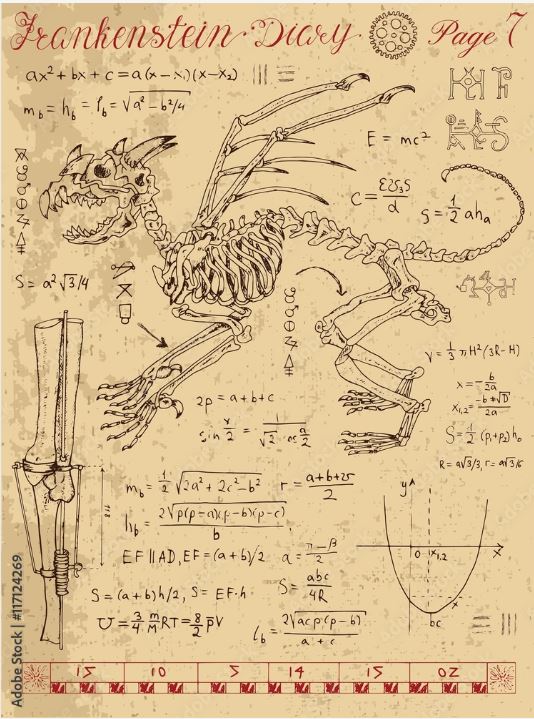 Frankenstein Diary Page 7
ax² + bx + c = a(x - x₁)(x - x₂)
m_b = h_b = l_b = √a² - b²/4
E = mc²
C = ε₀ε₃S/d
S = 1/2 aha
S = a²√3/4
V = 1/3 πH²(3R - H)
x = - b/2a
x₁,₂ = -b+√D/2a
S = 1/2 (p₁+p₂)h₀
R = a√3/3, r = a√3/6
2p = a + b + c
m_b = 1/2 √2a² + 2c² - b²
r = a+b+2r/2
h_b = 2√p(p-a)(p-b)(p-c)/b
EF || AD, EF = (a+b)/2
a = π-β/2
S = (a+b)h/2, S = EF·h
S = abc/4R
U = 3/4 m/M RT = 8/2 pV
l_b = 2√acp(p-b)/a+c
y
0
x₁,₂
x
x
bc
15 10 5 14 15 02
Adobe Stock | #117124269